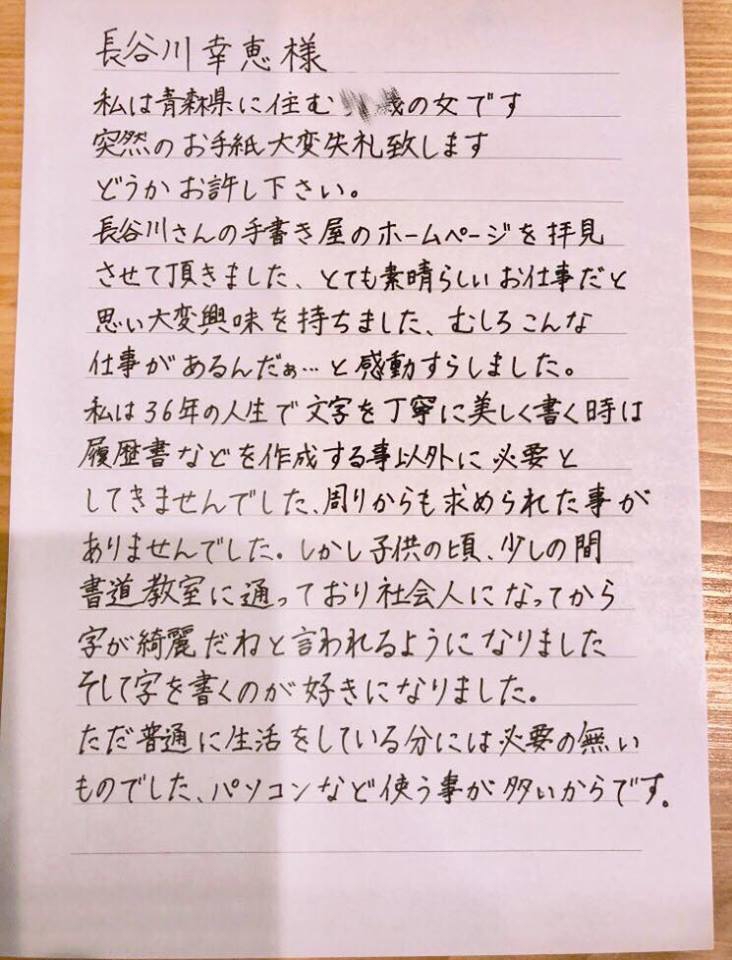 長谷川幸恵様
私は青森県に住む歳の女です
突然のお手紙大変失礼致します
どうかお許し下さい。
長谷川さんの手書き屋のホームページを拝見
させて頂きました、とても素晴らしいお仕事だと
思い大変興味を持ちました、むしろこんな
仕事があるんだぁ…と感動すらしました。
私は36年の人生で文字を丁寧に美しく書く時は
履歴書などを作成する事以外に必要と
してきませんでした、周りからも求められた事が
ありませんでした。しかし子供の頃、少しの間
書道教室に通っており社会人になってから
字が綺麗だねと言われるようになりました
そして字を書くのが好きになりました。
ただ普通に生活をしている分には必要の無い
ものでした、パソコンなど使う事が多いからです。